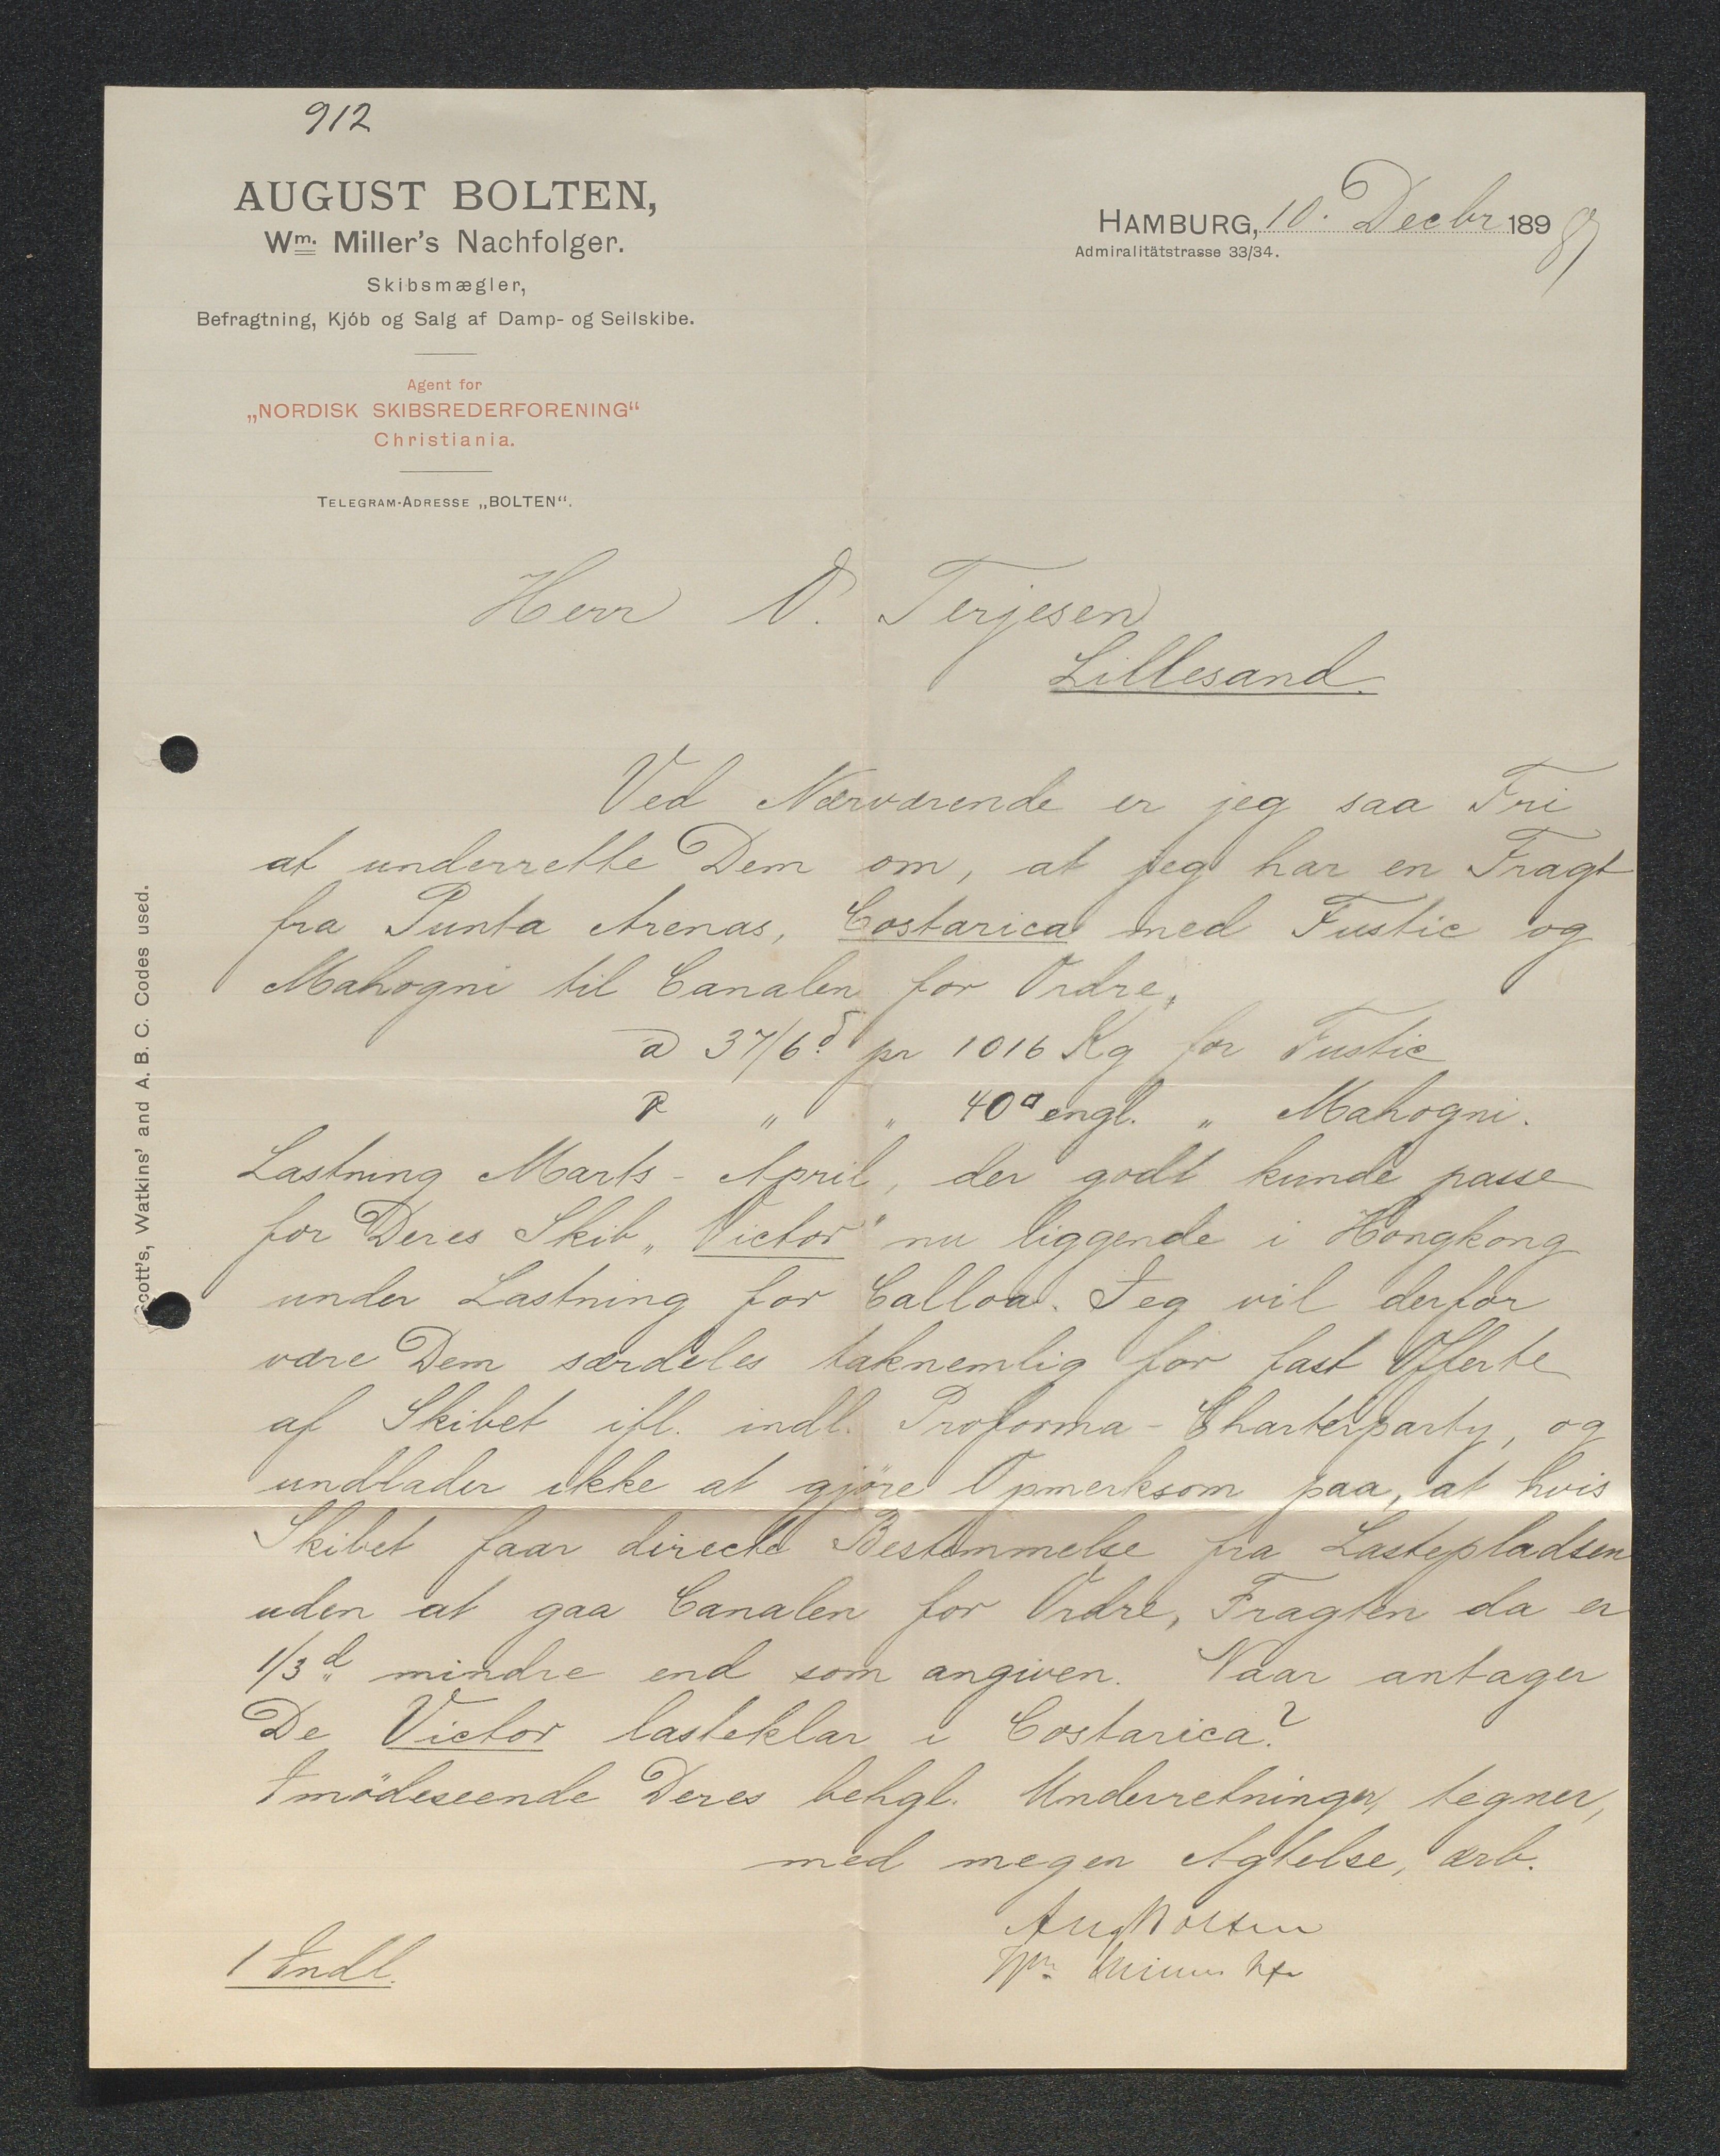 912
AUGUST BOLTEN,
Wm. Miller's Nachfolger.
Skibsmægler,
Befragtning, Kjób og Salg af Damp- og Seilskibe.
Agent for
„NORDISK SKIBSREDERFORENING“
Christiania.
TELEGRAM-ADRESSE „BOLTEN“.
HAMBURG, 10. Decbr 189
Admiralitätstrasse 33/34.
Herr O. Terjesen
Lillesand.
Scott's, Watkins' and A. B. C. Codes used.
Ved Nærværende er jeg saa Fri
at underrette Dem om, at jeg har en Fragt
fra Punta Arenas, Costarica med Fustic og
Mahogni til Canalen for Ordre,
a 37/6d pr 1016 Kg for Fustic
" " 40 engl. " Mahogni.
Lastning Marts - April, der godt kunde passe
for Deres Skib „Victor" nu liggende i Hongkong
under Lastning for Calloa. Jeg vil derfor
være Dem særdeles taknemlig for fast Offerte
af Skibet ifl. indl. Proforma - Charterparty, og
undlader ikke at gjöre Opmerksom paa, at hvis
Skibet faar directe Bestemmelse fra Lastepladsen
uden at gaa Canalen for Ordre, Fragten da er
1/3d mindre end som angiven. Naar antager
De Victor lasteklar i Costarica?
Imödeseende Deres behgl. Underretninger, tegner,
med megen Agtelse, ærb.
Aug Bolten
Wm Millers Nfr
1 Indl.